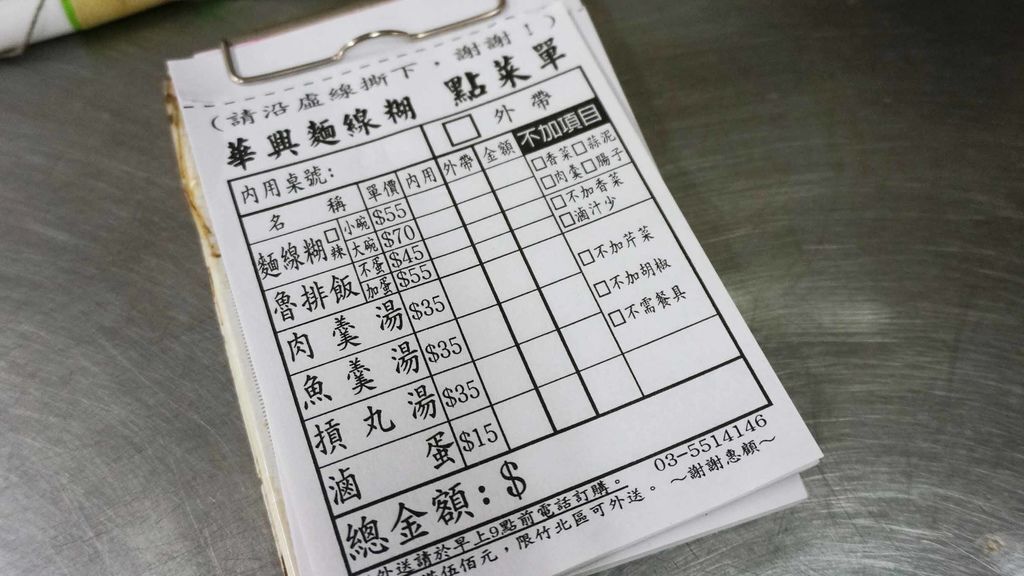 (請沿虛線撕下,謝謝!)
華興麵線糊 點菜單
內用桌號: □ 外帶
名稱 單價 內用 外帶 金額 不加項目
麵線糊 □辣 小碗 $55 □香菜□蒜泥
大碗 $70 □肉羹□腸子
魯排飯 不蛋 $45 □不加香菜
加蛋 $55 □滷汁少
肉羹湯 $35 □不加芹菜
魚羹湯 $35 □不加胡椒
摃丸湯 $35 □不需餐具
滷蛋 $15
總金額:$
外送請於早上9點前電話訂購。 03-5514146
伍佰元,限竹北區可外送。 ~謝謝惠顧~